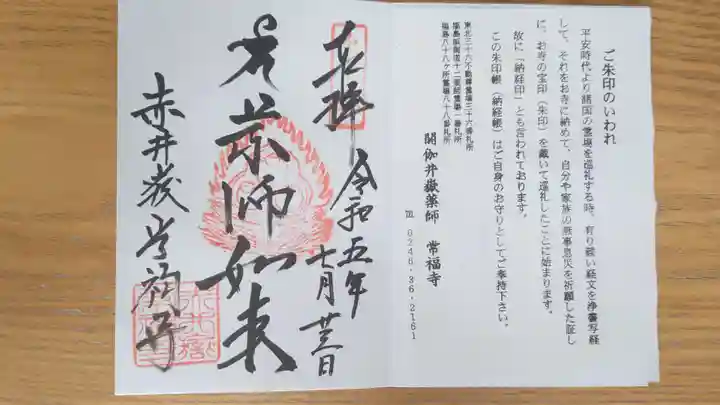 ご朱印のいわれ
平安時代より諸国の霊場を巡礼する時、有り難い経文を浄書写経
して、それをお寺に納めて、自分や家族の無事息災を祈願した証し
に、お寺の宝印（朱印）を戴いて巡礼したことに始まります。
故に「納経印」とも言われております。
この朱印帳（納経帳）はご自身のお守りとしてご奉持下さい。
東北三十六不動尊霊場三十六番札所
福島県浜通十二薬師霊場一番札所
福島八十八ヶ所霊場八十八番札所
閼伽井嶽薬師　常福寺
℡ 0246-36-2161
奉拝
令和五年
十月廿三日
薬師如来
赤井嶽常福寺